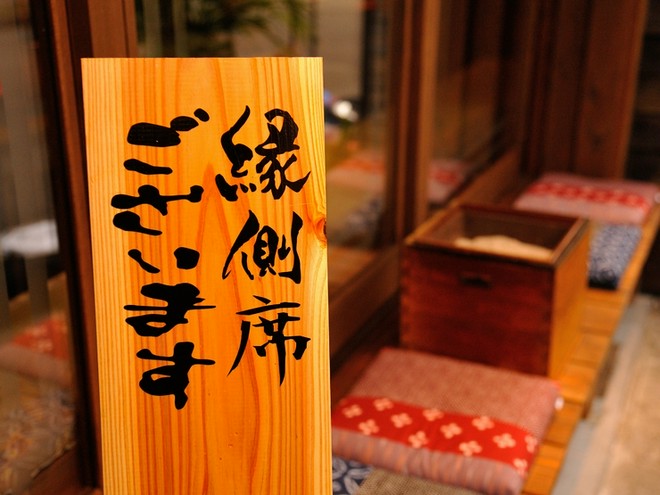 縁側席
ございます